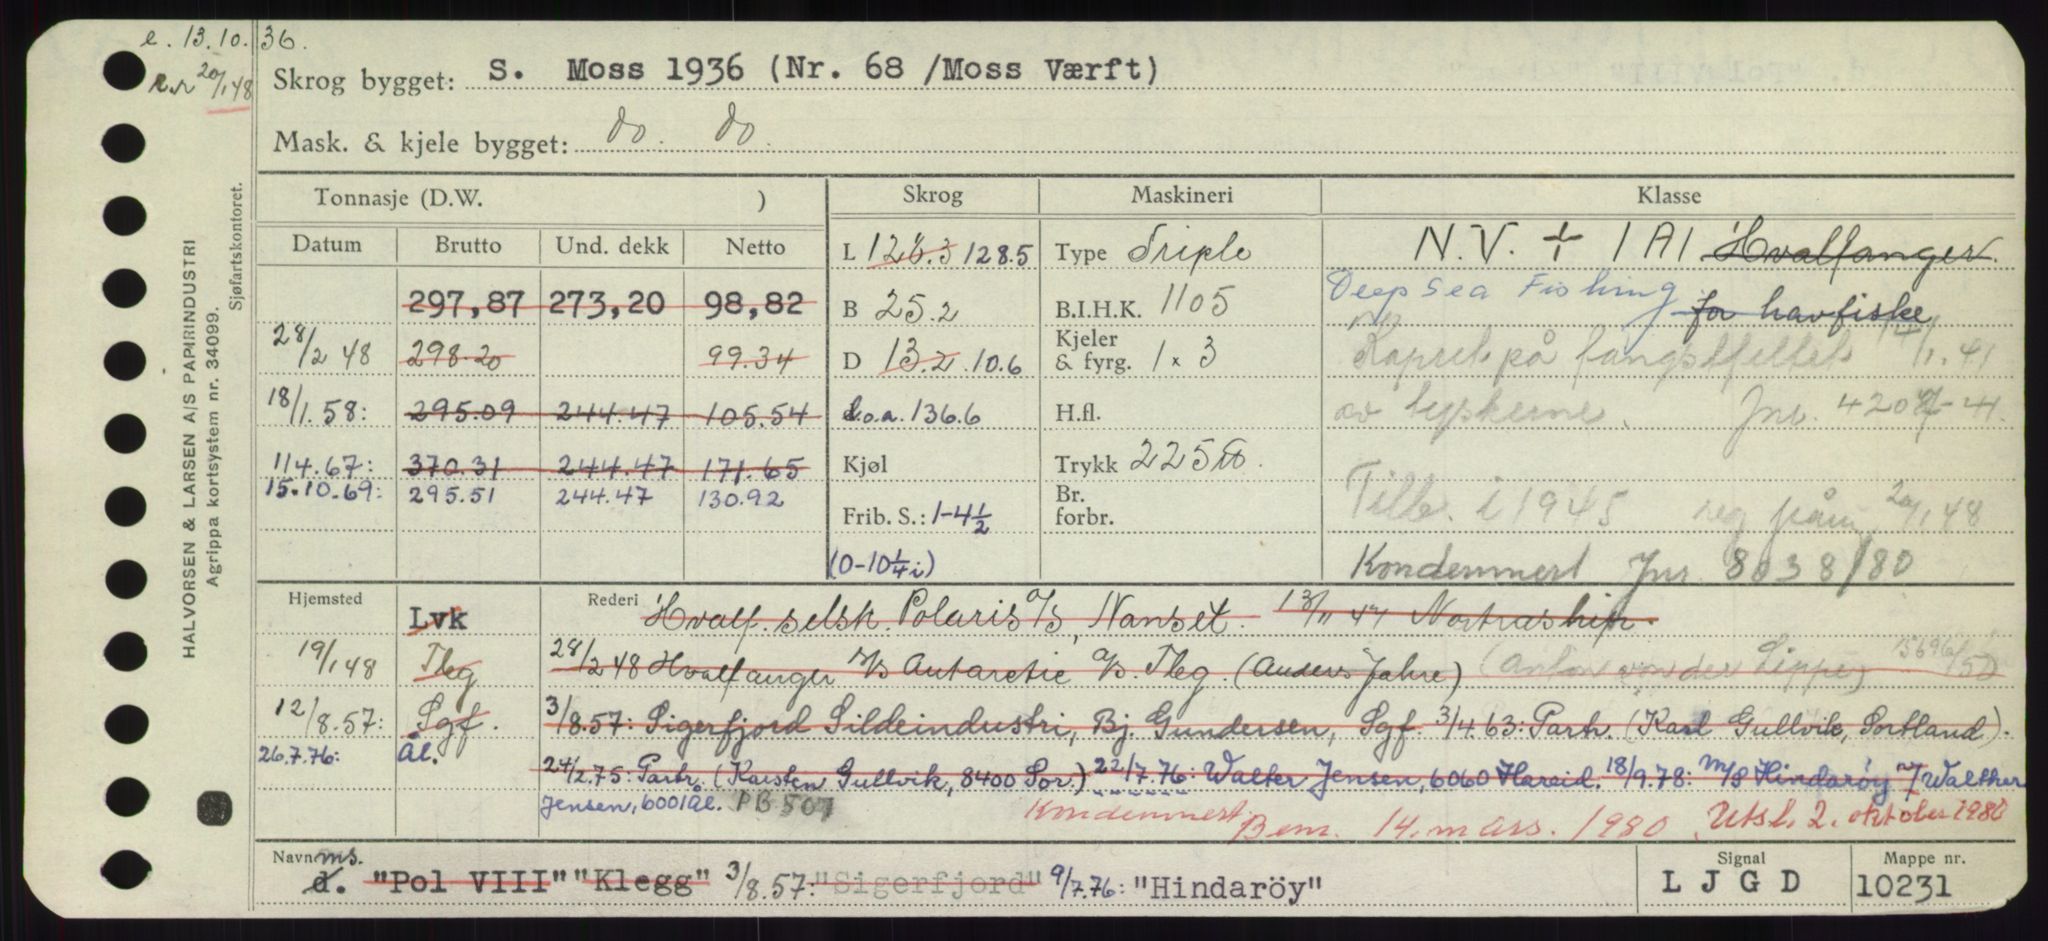 e. 13.10.36.
e.r 20/1 48
Skrog bygget: S. Moss 1936 (Nr. 68 /Moss Værft)
Mask. & kjele bygget: do. do.
HALVORSEN & LARSEN A/S PAPIRINDUSTRI
Agrippa kortsystem nr. 34099.
Sjøfartskontoret.
Tonnasje (D.W. ) Skrog Maskineri Klasse
Datum Brutto Und. dekk Netto
L 128.3 128.5 Type Triple N.V. + 1A1 Hvalfanger.
297,87 273,20 98,82 B 25.2 B.I.H.K. 1105 Deep Sea Fishing for havfiske
28/2 48 298.20 99.34 D 13.2 10.6 Kjeler & fyrg. 1 x 3 Kapret på fangstfeltet 14/1.41
18/1.58: 295.09 244.47 105.54 L.o.a. 136.6 H.fl. av tyskerne. Jnr. 4208-41.
1/4.67: 370.31 244.47 171.65 Kjøl Trykk 225
15.10.69: 295.51 244.47 130.92 Frib. S.: 1-4½ Br. forbr. Tilb. i 1945 reg 20/1 48
(0-10¼ i) Kondemnert Jnr 8038/80
Hjemsted Lvk Rederi Hvalf. selsk. Polaris A/S, Nanset. 13/11 47 Nortraship.
19/1 48 Tbg 28/2 48 Hvalfanger A/S Antarctic A/S. Tbg. (Anders Jahre) (Anton von der Lippe) 5696/52
12/8.57: Sgf. 3/8.57: Sigerfjord Sildeindustri, Bj. Gundersen, Sgf. 3/4.63: Partr. (Karl Gullvik, Sortland).
26.7.76: Ål. 24/2.75: Partr. (Karsten Gullvik, 8400 Sor.) 22/7.76: Walter Jensen, 6060 Hareid. 18/9.78: M/S Hindarøy v/ Walther
Jensen, 6001 Ål. PB 507 Kondemnert Bem. 14. mars. 1980. Utsl. 2. oktober 1980
Navn ms. d. "Pol VIII" "Klegg" 3/8.57: "Sigerfjord" 9/7.76: "Hindaröy" Signal L J G D Mappe nr. 10231